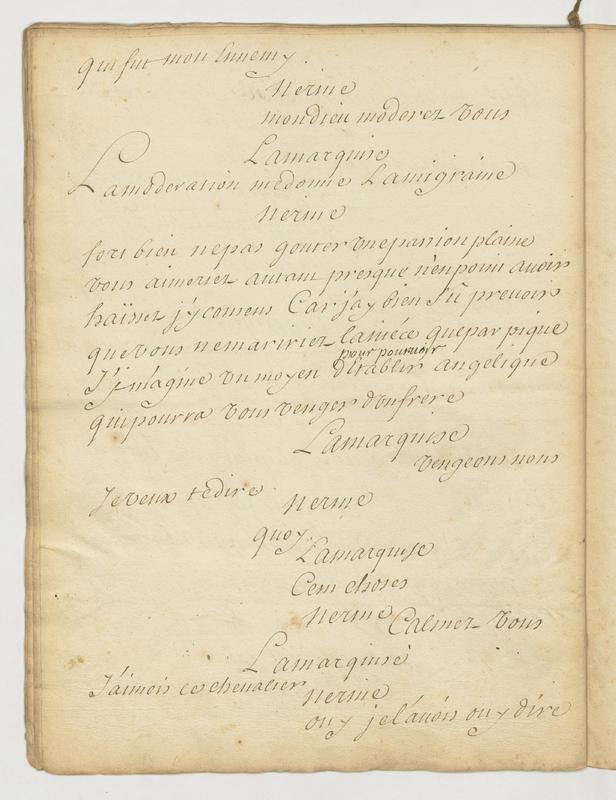 qui fut mon Ennemy
Nerine
mondieu moderez vous
Lamarquise
Lamoderation medonne Lamigraine
Nerine
fort bien nepas gouter vnepassion plaine
vous aimeriez autant presque n'enpoint avoir
haïssez j'y consens Car j'ay bien sû prevoir
quevous nemaririez laniéce quepar pique
pour pourvoir
J'jmagine vn moyen d'établir angelique
quipourra vous venger d'unfrere
Lamarquise
vengeons nous
Jeveux tedire
Nerine
quoy
Lamarquise
Cent choses
Nerine
Calmez vous
Lamarquise
J'aimois ce chevalier
Nerine
ouy je l'avois ouy dire